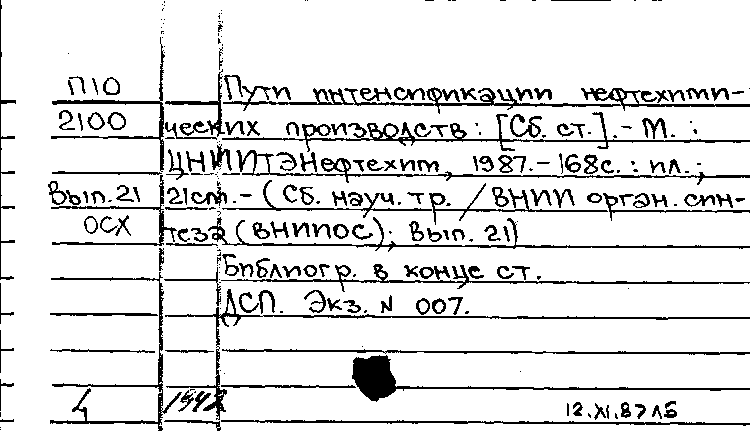 П10 Пути интенсификации нефтехими-
2100 ческих производств: [Сб. ст.].- М. :
ЦНИИТЭНефтехим, 1987.- 168с. : ил.;
Вып.21 21см.- (Сб. науч. тр. / ВНИИ орган. син-
ОСХ теза (ВНИИОС); Вып. 21)
Библиогр. в конце ст.
ДСП. Экз. N 007.
4 1942 12.XI.87